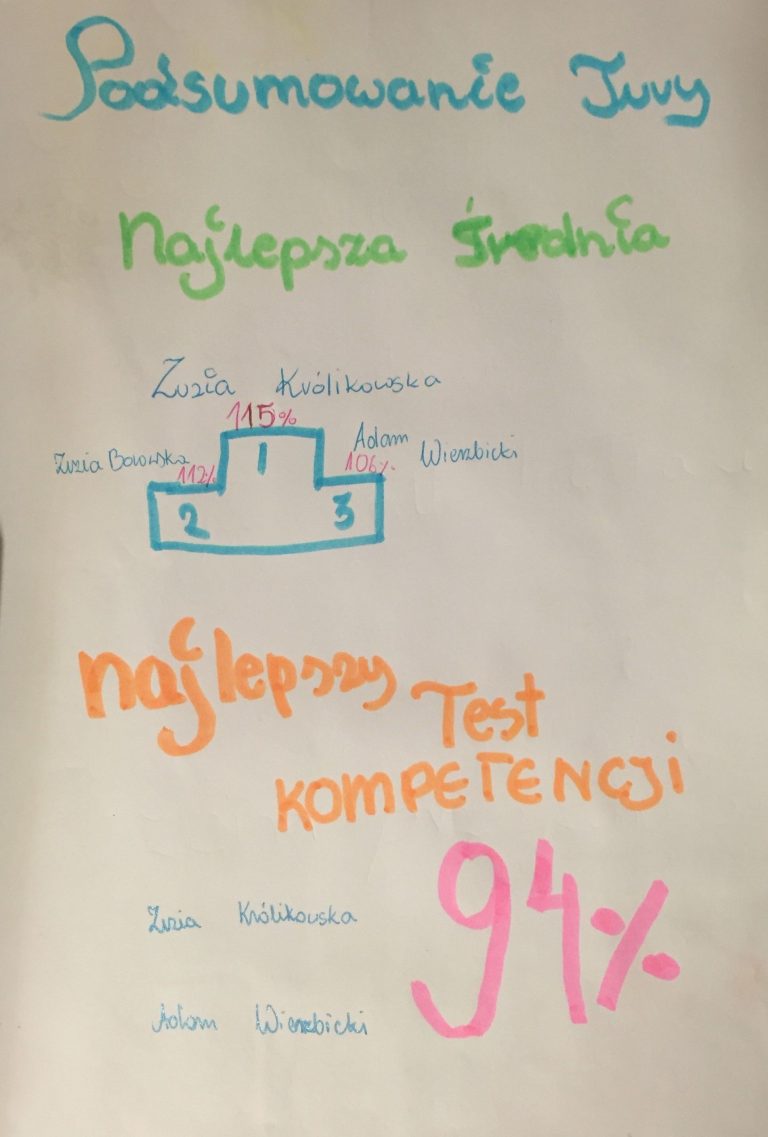 Podsumowanie Juvy
Najlepsza średnia
Zuzia Królikowska
115%
Adam Wierzbicki
106%
Zuzia Borowska
112%
1
2 3
najlepszy Test
KOMPETENCJI
94%
Zuzia Królikowska
Adam Wierzbicki